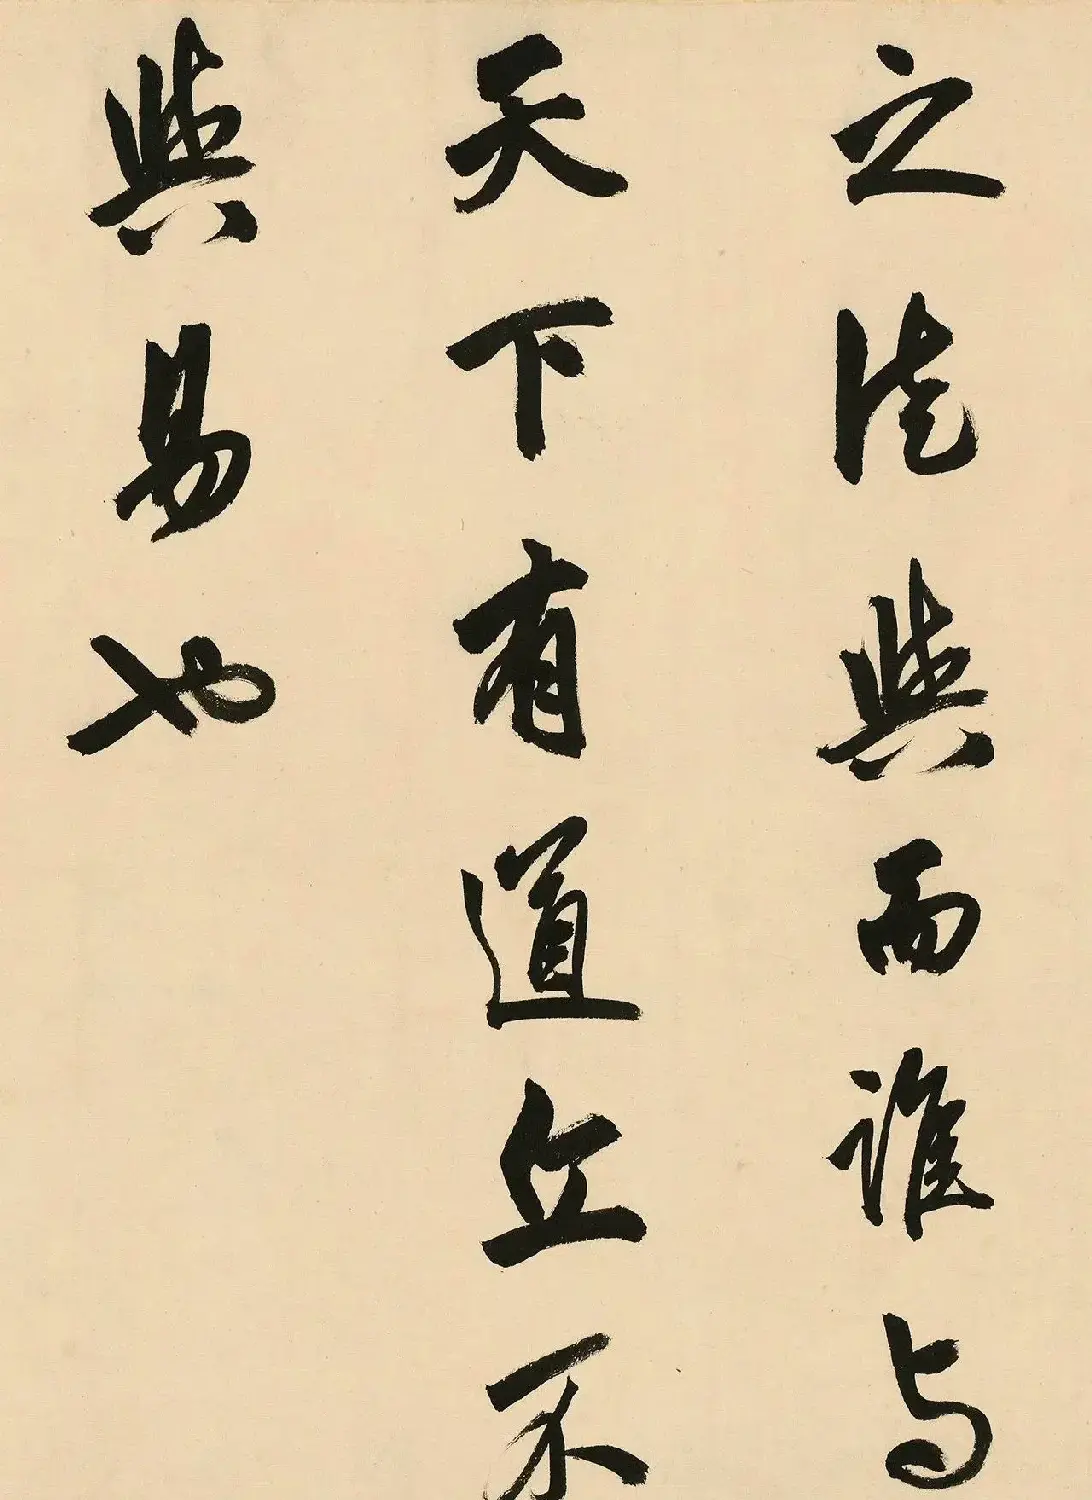 之徒與而誰与
天下有道丘不
與易也